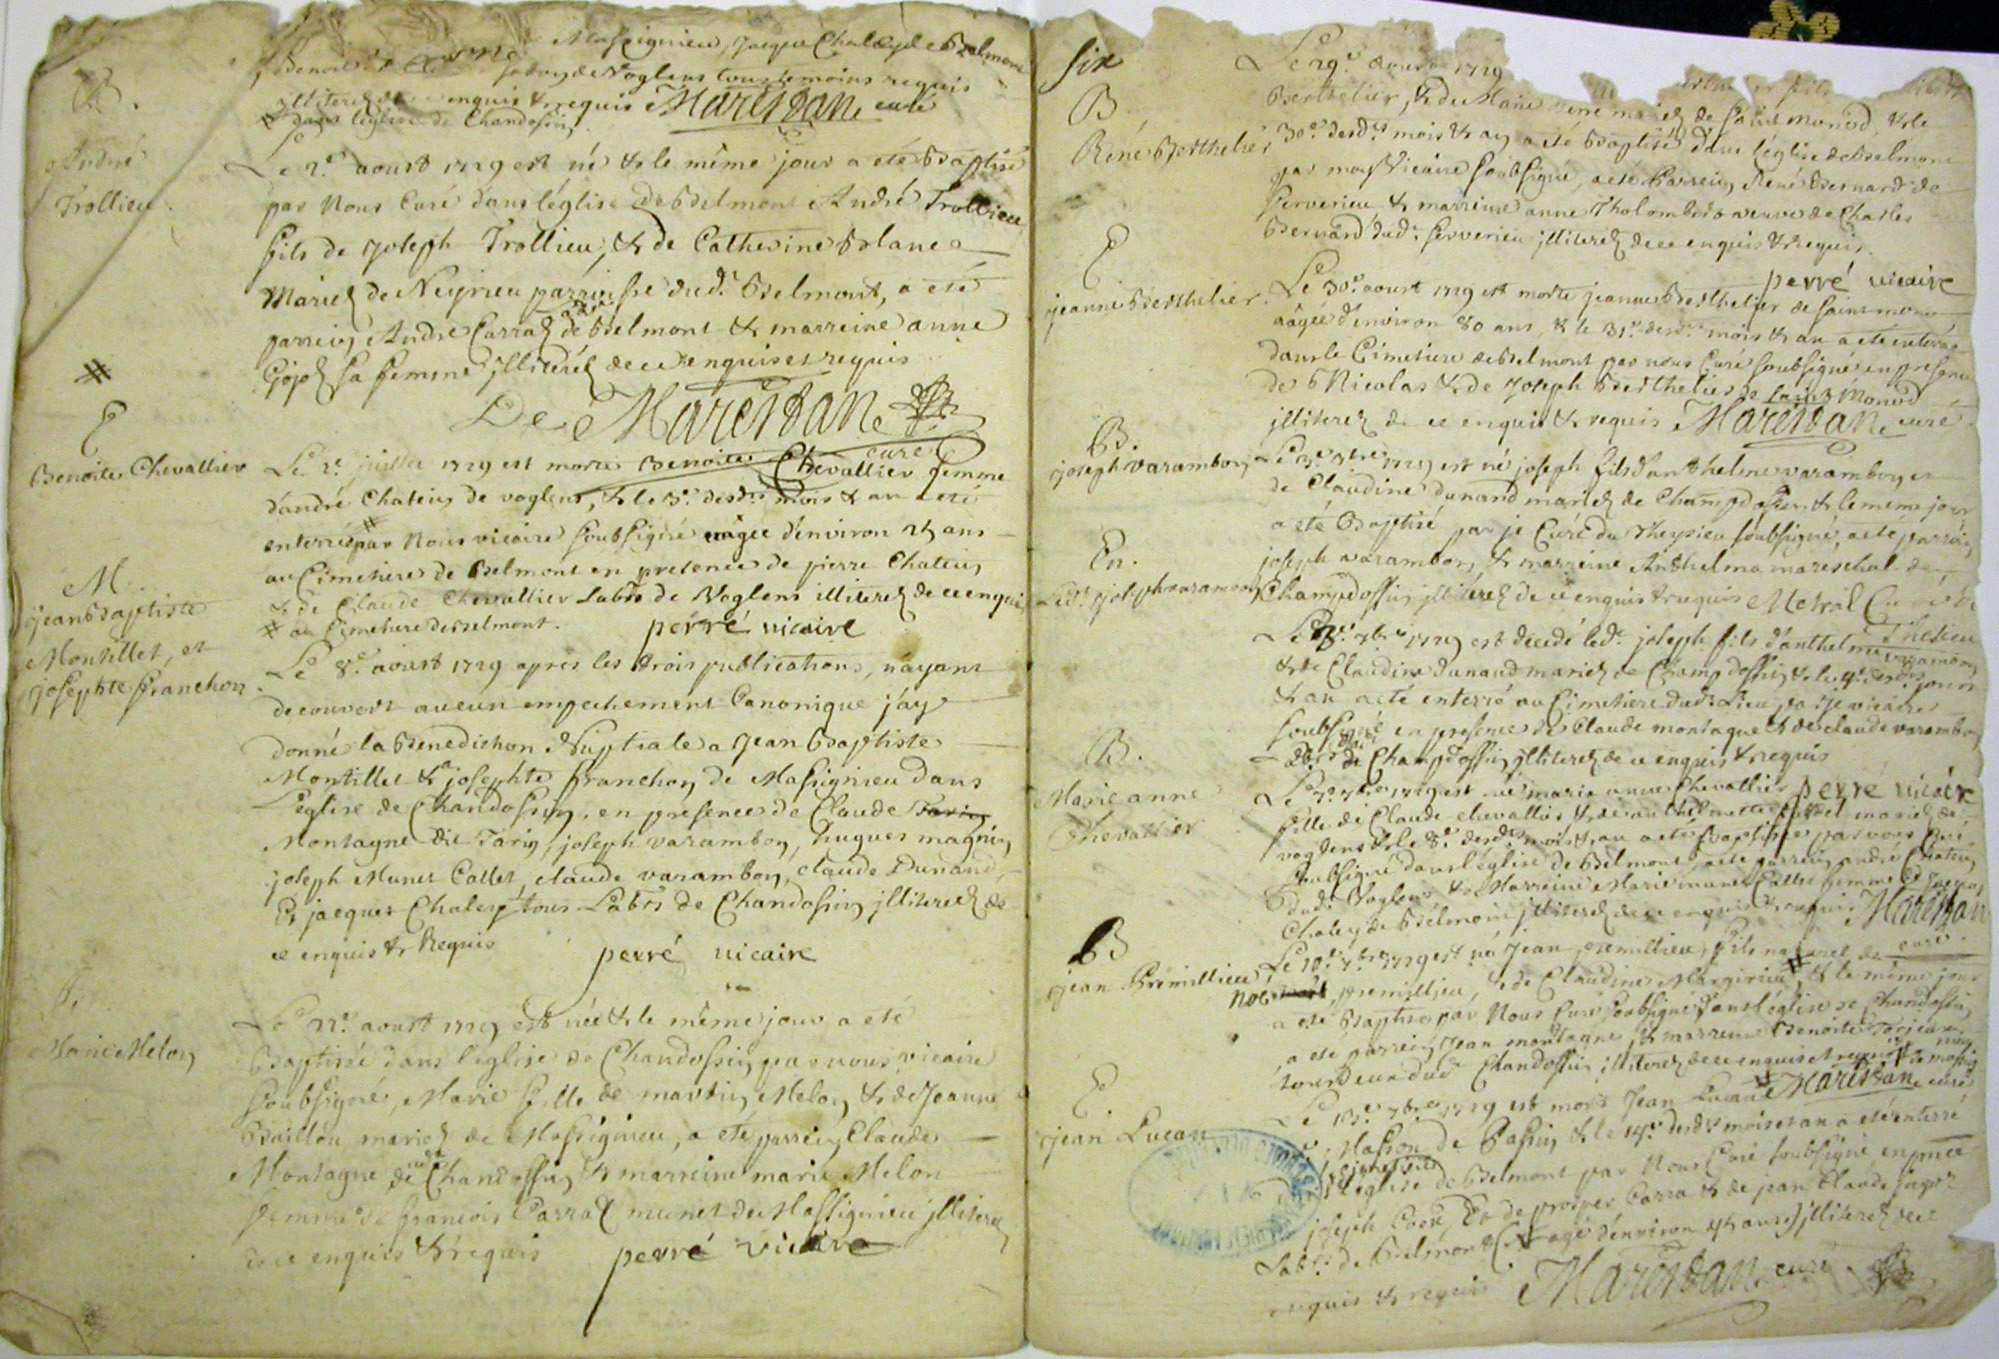 Massignieu, Jacque Chaley de Belmont
de Voglens tous temoins requis
illiterez de ce enquis & requis Marestan curé
# dans l'église de Chandossin
B.
André
Trollieu
Le 2e aoust 1729 est né & le même jour a eté Baptisé
par Nous Curé dans l'église de Belmont André Trollieu
fils de Joseph Trollieu, & de Catherine Blanc
Mariez de Neyrieu parroisse dudt Belmont, a eté
parrein André Carraz de Belmont & marreine anne
Gojoz sa femme illiteréz de ce enquis et requis
De Marestan
curé
#
E
Benoite Chevallier
Le 2e juillet 1729 est morte Benoite Chevallier femme
d'andré Chatein de voglens, & le 3e desdts mois & an a eté
enterrée # par Nous vicaire soubsigné aagée d'environ 25 ans
au Cimetiere de Belmont en presence de pierre Chatein
& de Claude Chevallier Labrs de Voglens illiterez de ce enquis
# au Cimetiere de Belmont. perré vicaire
M.
jean Baptiste
Montillet, et
josephte franchon
Le 8e aoust 1729 apres les trois publications, n'ayant
decouvert aucun empechement Canonique j'ay
donné la Benediction Nuptiale a Jean Baptiste
Montillet & a josephte franchon de Massignieu dans
l'eglise de Chandossin, en presence de Claude Tarin
Montagne dit Tarin, joseph varambon, hugues magnin
joseph Munet Collet, claude varambon, claude Dunand,
Et jacques Chaley tous Labrs de Chandossin illiterez de
ce enquis & Requis perré vicaire
B.
Marie Melon
Le 22e aoust 1729 est née & le même jour a eté
Baptisée dans l'eglise de Chandossin par nous vicaire
soubsigné, Marie fille de martin Melon & de Jeanne
Baillou mariez de Massignieu, a eté parrein Claude
Montagne de Chandossin & marreine marie Melon
femme de françois Carraz munet de Massignieu illiterez
de ce enquis & requis perré vicaire
six
B
René Berthelier
Le 29e aoust 1729
Berthelier, & de Marie mariez de saint Monod, & le
30e desdts mois & an a eté Baptisé dans l'église de Belmont
par moy vicaire soubsigné, a eté Parrein René Bernard de
Ferverieu & marreine anne Tholombert veuve de Charles
Bernard dudt ferverieu illiterez de ce enquis & requis
perré vicaire
E
jeanne Berthelier
Le 30e aoust 1729 est morte jeanne Berthelier de saint monod
aagée d'environ 80 ans, & le 31e desdts mois & an a eté enterrée
dans le Cimetiere de Belmont par nous Curé soubsigné en presence
de Nicolas & de Joseph Berthelier de saint Monod
illiterez de ce enquis & requis Marestan curé
B.
joseph varambon
Le 3e 7bre 1729 est né joseph fils d'anthelme varambon et
de Claudine dunand mariez de Champdossin & le meme jour
a eté Baptisé par je Curé du Theysieu soubsigné, a eté parrein
joseph varambon & marreine Anthelma mareschal de
Champdossin illiterez de ce enquis & requis Metral Curé de
Thesieu
En.
Ledt joseph varambon
Le 3e 7bre 1729 est decedé ledt joseph fils d'anthelme varambon
& de Claudine dunand mariez de Champdossin & le 4e desdts jour
& an a eté enterré au Cimetiere dudt Lieu par je vicaire
soubsigné en presence de Claude montagne & de claude varambon
Labrs de Champdossin illiterez de ce enquis & requis
perré vicaire
B.
Marie anne
Chevallier
Le 7e 7bre 1729 est née marie anne Chevallier
fille de Claude chevallier & de mariez de
voglens & le 8e desdts mois & an a eté Baptisée par nous Curé
soubsigné dans l'église de Belmont, a eté parrein andré Chatein
dudt Voglens, & Marreine Marie munet Collet femme de Jacques
Chaley de Belmont illiterez de ce enquis & requis Marestan
curé.
B
jean Prémillieu
Le 10e 7bre 1729 est né Jean premillieu, fils naturel de
Noel premillieu, & de Claudine Marginieu, # & le même jour
a eté Baptisé par Nous Curé soubsigné dans l'église de Chandossin
a eté parrein Jean montagne & marreine Benoite
tous deux dudt Chandossin illiterez de ce enquis et requis # de massig
nieu
Marestan curé
E
jean Lucan
Le 13e 7bre 1729 est mort Jean Lucan #
# Masson de Bassin & le 14e desdts mois et an a eté enterré
l'église de Belmont par Nous Curé soubsigné en pnce
joseph Cocu, Et de prosper Carra & de jean Claude
Labrs de Belmont (# agé d'environ 45 ans) illiterez de ce
enquis & requis Marestan curé